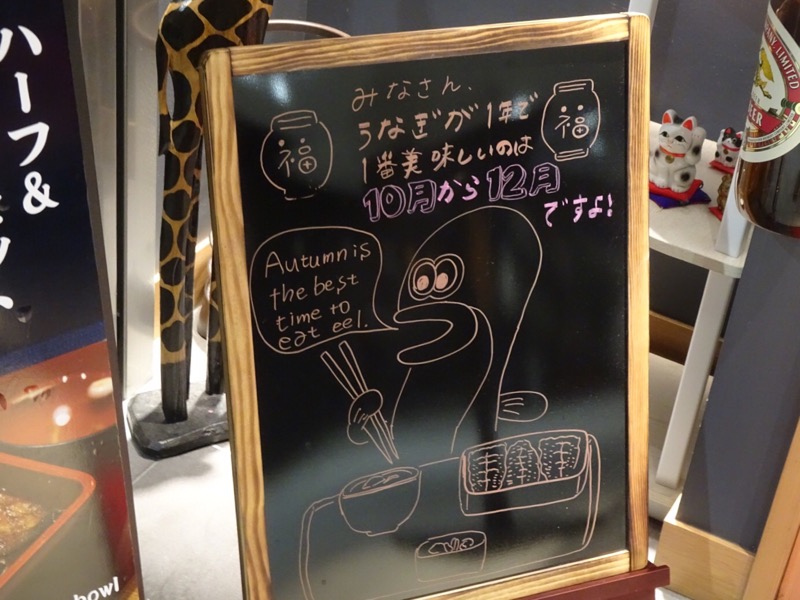 ハーフ&
bowl
みなさん、
うなぎが1年で
1番美味しいのは
10月から12月
ですよ!
福
福
Autumn is
the best
time to
eat eel.
LIMITED